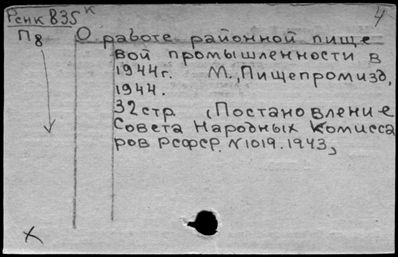 Рснк 835 к
4
П8
О работе районной пище
вой промышленности в
1944г. М., Пищепромизд,
1944.
32стр (Постановление
Совета Народных Комисса
ров РСФСР. N1019.1943,
X